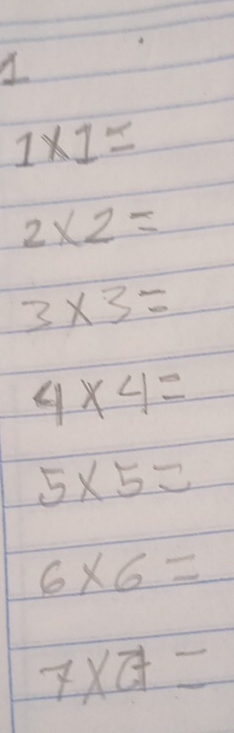 1
1×1=
2×2=
3×3=
4×4=
5×5=
6×6=
7×7=